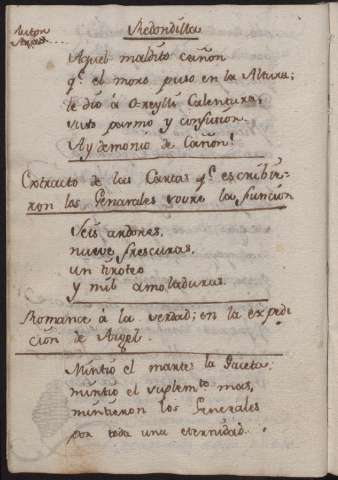 Redondilla
Autor
Aquel maldito cañon
q.e el moro puso en la Altura;
le dió á Oreylli Calentura,
susto pasmo y confusion.
Ay demonio de Cañon!
Extracto de las Cartas q.e escribie-
ron los Generales sovre la funcion
Seis ardores,
nueve frescuras,
un tiroteo
y mil amoladuras.
Romance á la verdad; en la expedi-
ción de Argel.
Mintió el martes la Gaceta;
mintió el suplem.to mas,
mintieron los Generales
por toda una eternidad.